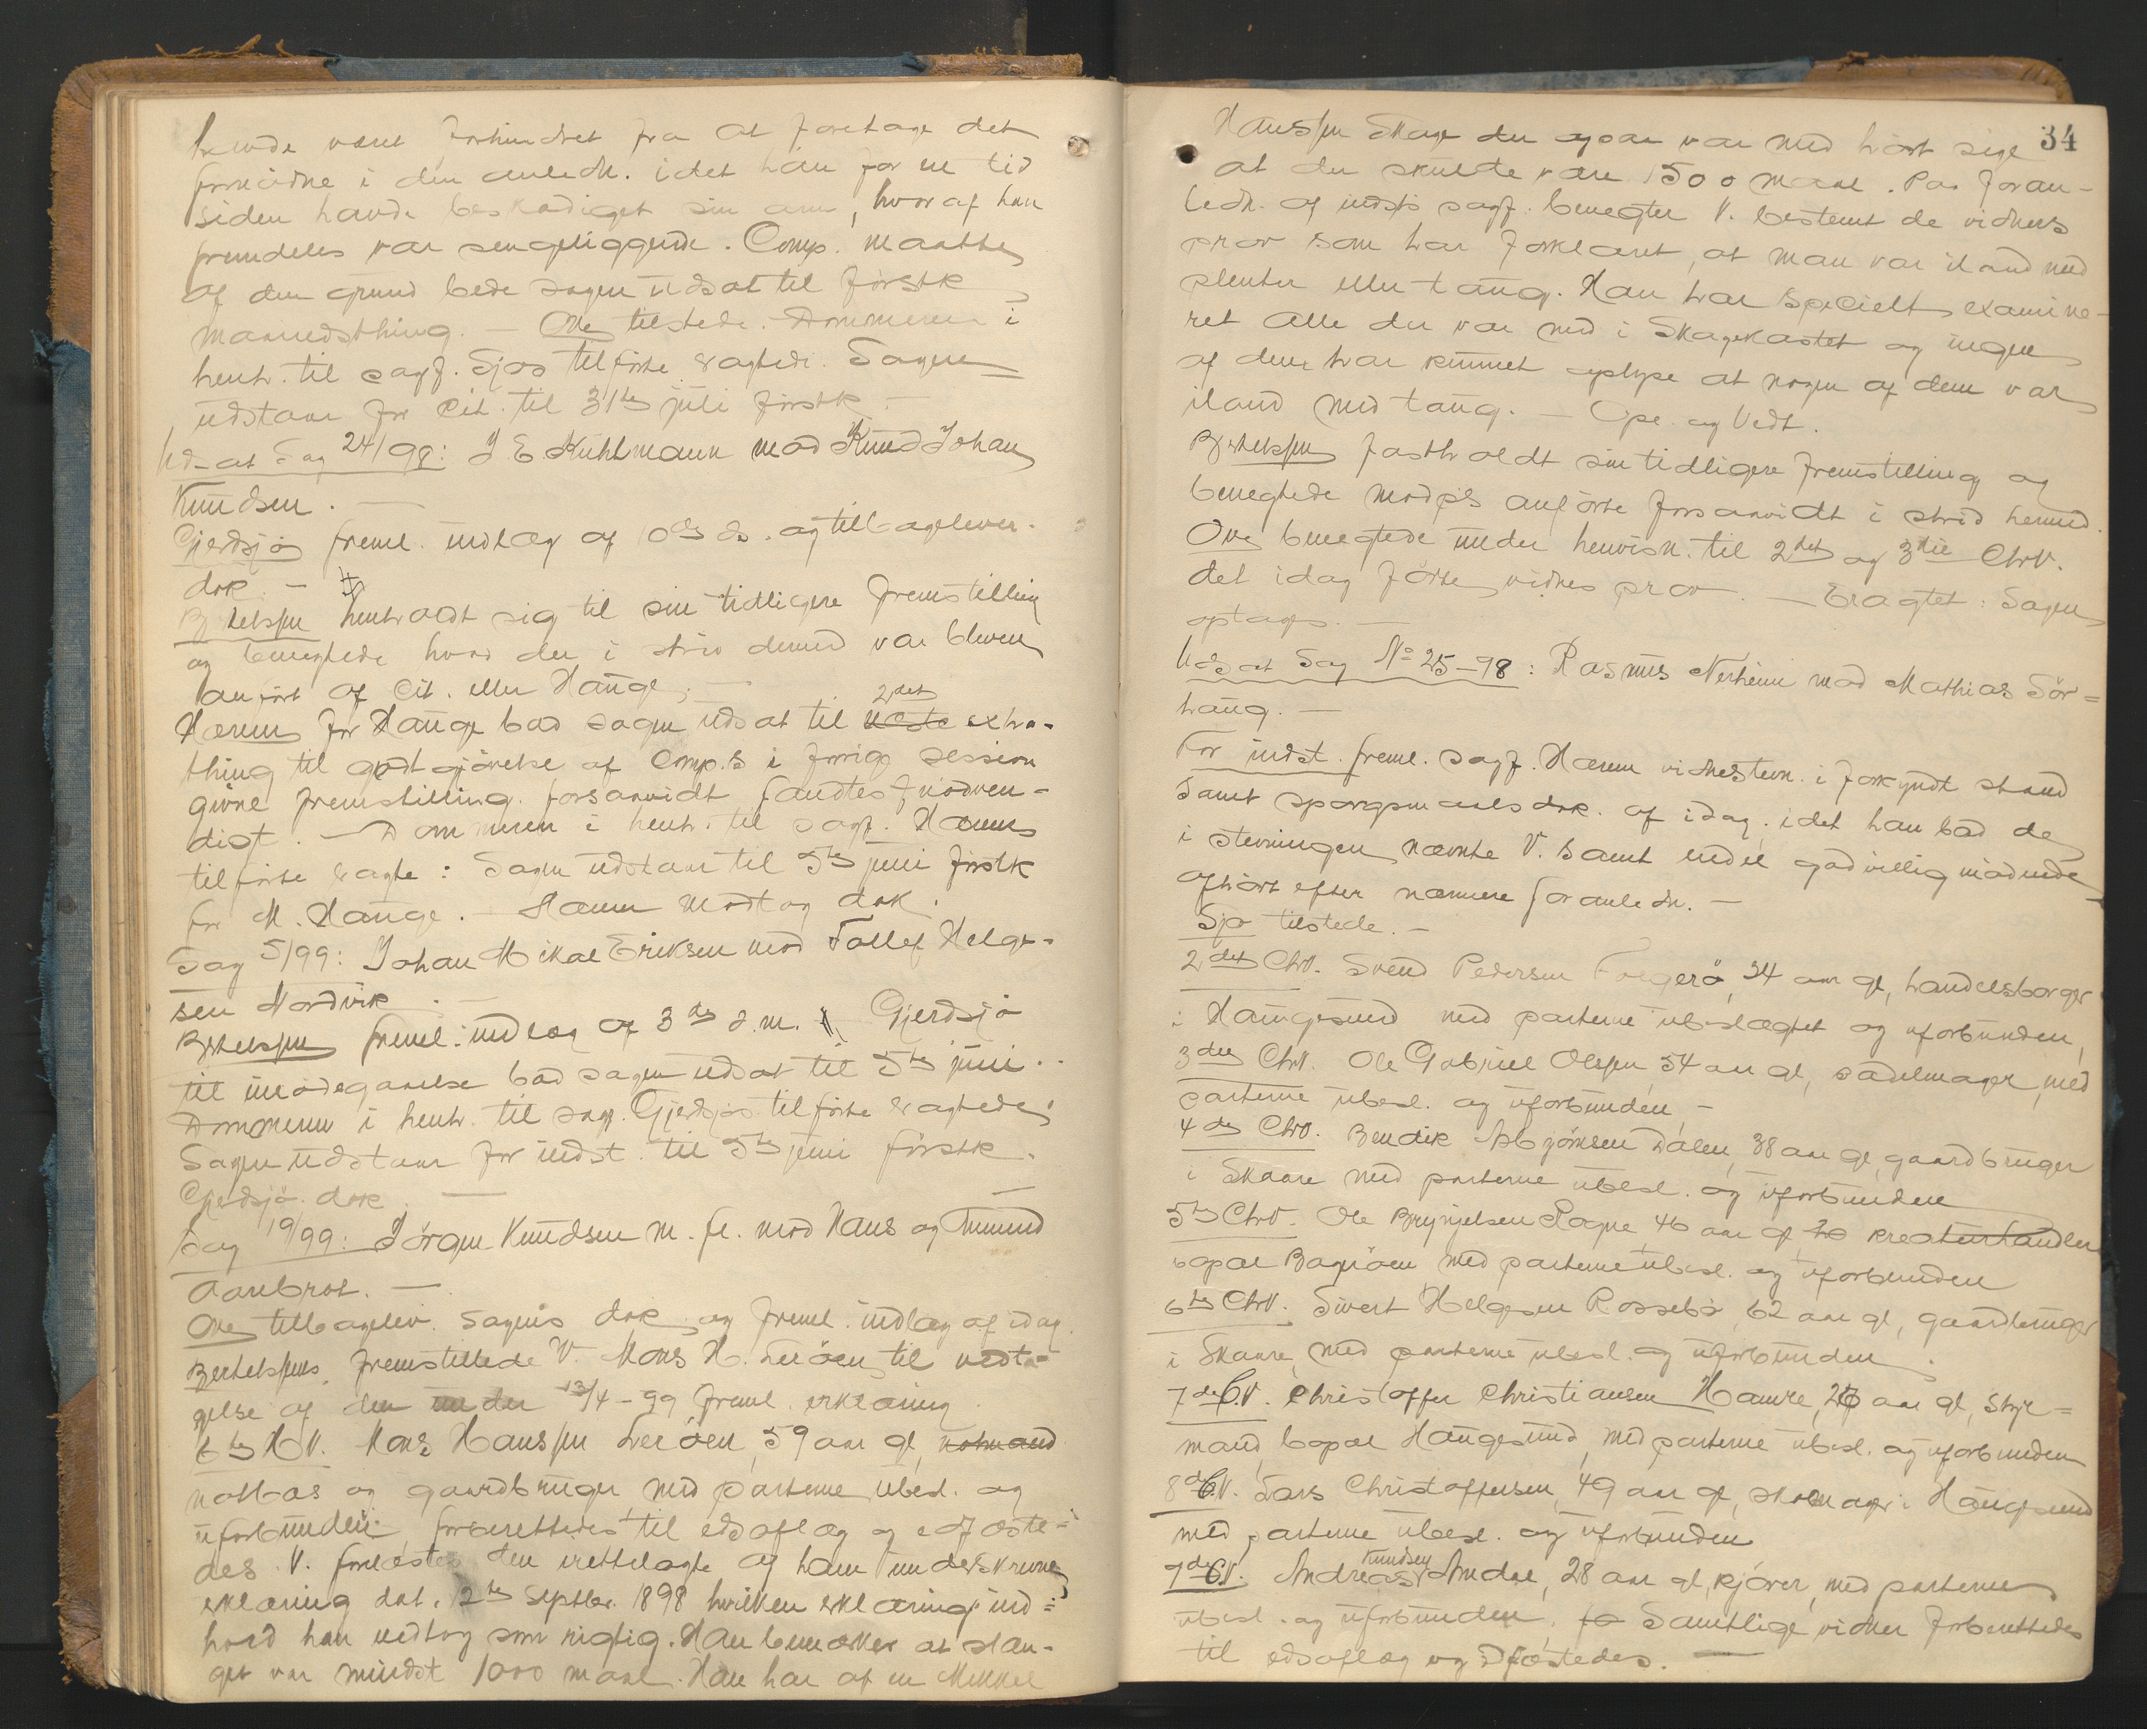 havde været forhindret fra at foretage det
fornødne i den anledn. idet han for en tid
siden havde beskadiget sin arm, hvoraf han
fremdeles var sengeliggende. Comp. maatte
af den grund bede sagen udsat til førstk
maanedsthing. — Ove tilstede. Dommeren i
henh. til sagf. Sjøs tilførte eragtede: Sagen
udstaar for Cit. til 31te juli førstk. —
Udsat Sag 24/98: J E Kuhlmann mod Knud Johan
Knudsen. —
Gjerdsjø freml. indlæg af ds. og tilbagelever.
dok. —
Bertelsen henholdt sig til sin tidligere fremstilling
og benegtede hvad der i strid dermed var bleven
anført af Cit. eller Hauge. —
Hærem for Hauge bad sagen udsat til 2det næste extra-
thing til godtgjørelse af Comp.s i forrige session
givne fremstilling forsaavidt fandtes nødven-
digt. — Dommeren i henh. til sagf. Hærems
tilførte eragte: Sagen udstaar til 5te juni førstk
for M. Hauge. — Hærem modtog dok.
Sag 5/99: Johan Mikal Eriksen mod Tollef Helge-
sen Nordvik. —
Bertelsen freml. indlæg af 3die d.m. Gjerdsjø
til imødegaaelse bad sagen udsat til 5te juni.
Dommeren i henh. til sagf. Gjerdsjøs tilførte eragtede:
Sagen udstaar for indst. til 5te juni førstk.
Gjerdsjø dok. —
Sag 19/99: Jørgen Knudsen m. fl. mod Hans og Amund
Aarebrot. —
Ove tilbagelev. sagens dok. og freml. indlæg af idag.
Bertelsens fremstillede V. Mons H. Lerøen til vedta-
gelse af den under 13/4-99 freml. erklæring.
6te HV. Mons Hanssen Lerøen, 59 aar gl, notmand
notbas og gaardbruger med parterne ubesl. og
uforbunden forberettedes til edsaflæg og edfæste-
des. V. forelæstes den irettelagte af ham underskrevne
erklæring dat. 12te Septbr. 1898 hvilken erklærings ind-
hold han vedtog som rigtig. Han bemærker at stæn-
get var mindst 1000 maal. Han har af en Mikkel
34
Hanssen Skage der ogsaa var med hørt sige
at der skulde være 1500 maal. Paa foran-
ledn. af indst.s sagf. benegter V. bestemt de vidners
prov som har forklaret, at man var iland med
splenter eller tang. Han har specielt examine-
ret alle der var med i Skagekastet og ingen
af dem har kunnet oplyse at nogen af dem var
iland med tang. — Opl. og Vedt.
Bertelsen fastholdt sin tidligere fremstilling og
benegtede modp.s anførte forsaavidt i strid hermed.
Ove benegtede under henvisn. til 2det og 3die ChV.
det idag førte vidnes prov. — Eragtet: Sagen
optages. —
Udsat Sag No 25-98: Rasmus Nerheim mod Mathias Sør-
haug. —
For indst. freml. sagf. Hærem vidnestevn. i forkyndt stand
samt spørgsmaalsdok. af idag, idet han bad de
i stevningen nævnte V. samt endel godvillig mødende
afhørt efter nærmere foranledn. —
Sjø tilstede. —
2det ChV. Svend Pedersen Fægerø, 34 aar gl, handelsborger
i Haugesund med parterne ubeslægtet og uforbunden,
3die ChV. Ole Gabriel Olsen 54 aar gl, sadelmager, med
parterne ubesl. og uforbunden, —
4de ChV. Bendik Asbjørnsen Dalen, 38 aar gl, gaardbruger
i Skaare med parterne ubesl. og uforbunden
5te ChV. Ole Brynjelsen Rogne, 46 aar gl, kreaturhandler
bopæl Bagnøen med parterne ubesl. og uforbunden
6te ChV. Sivert Helgesen Rossebø 62 aar gl, gaardbruger
i Skaare, med parterne ubesl. og uforbunden.
7de C.V. Christoffer Christiansen Hamre, aar gl, styr-
mand, bopæl Haugesund, med parterne ubesl. og uforbunden
8de C.V. Lars Christoffersen, 49 aar gl, skomager i Haugesund
med parterne ubesl. og uforbunden
9de C.V. Andreas Knudsen Amdal, 28 aar gl, kjører, med parterne
ubesl. og uforbunden. Samtlige vidner forberettedes
til edsaflæg og edfæstedes. —